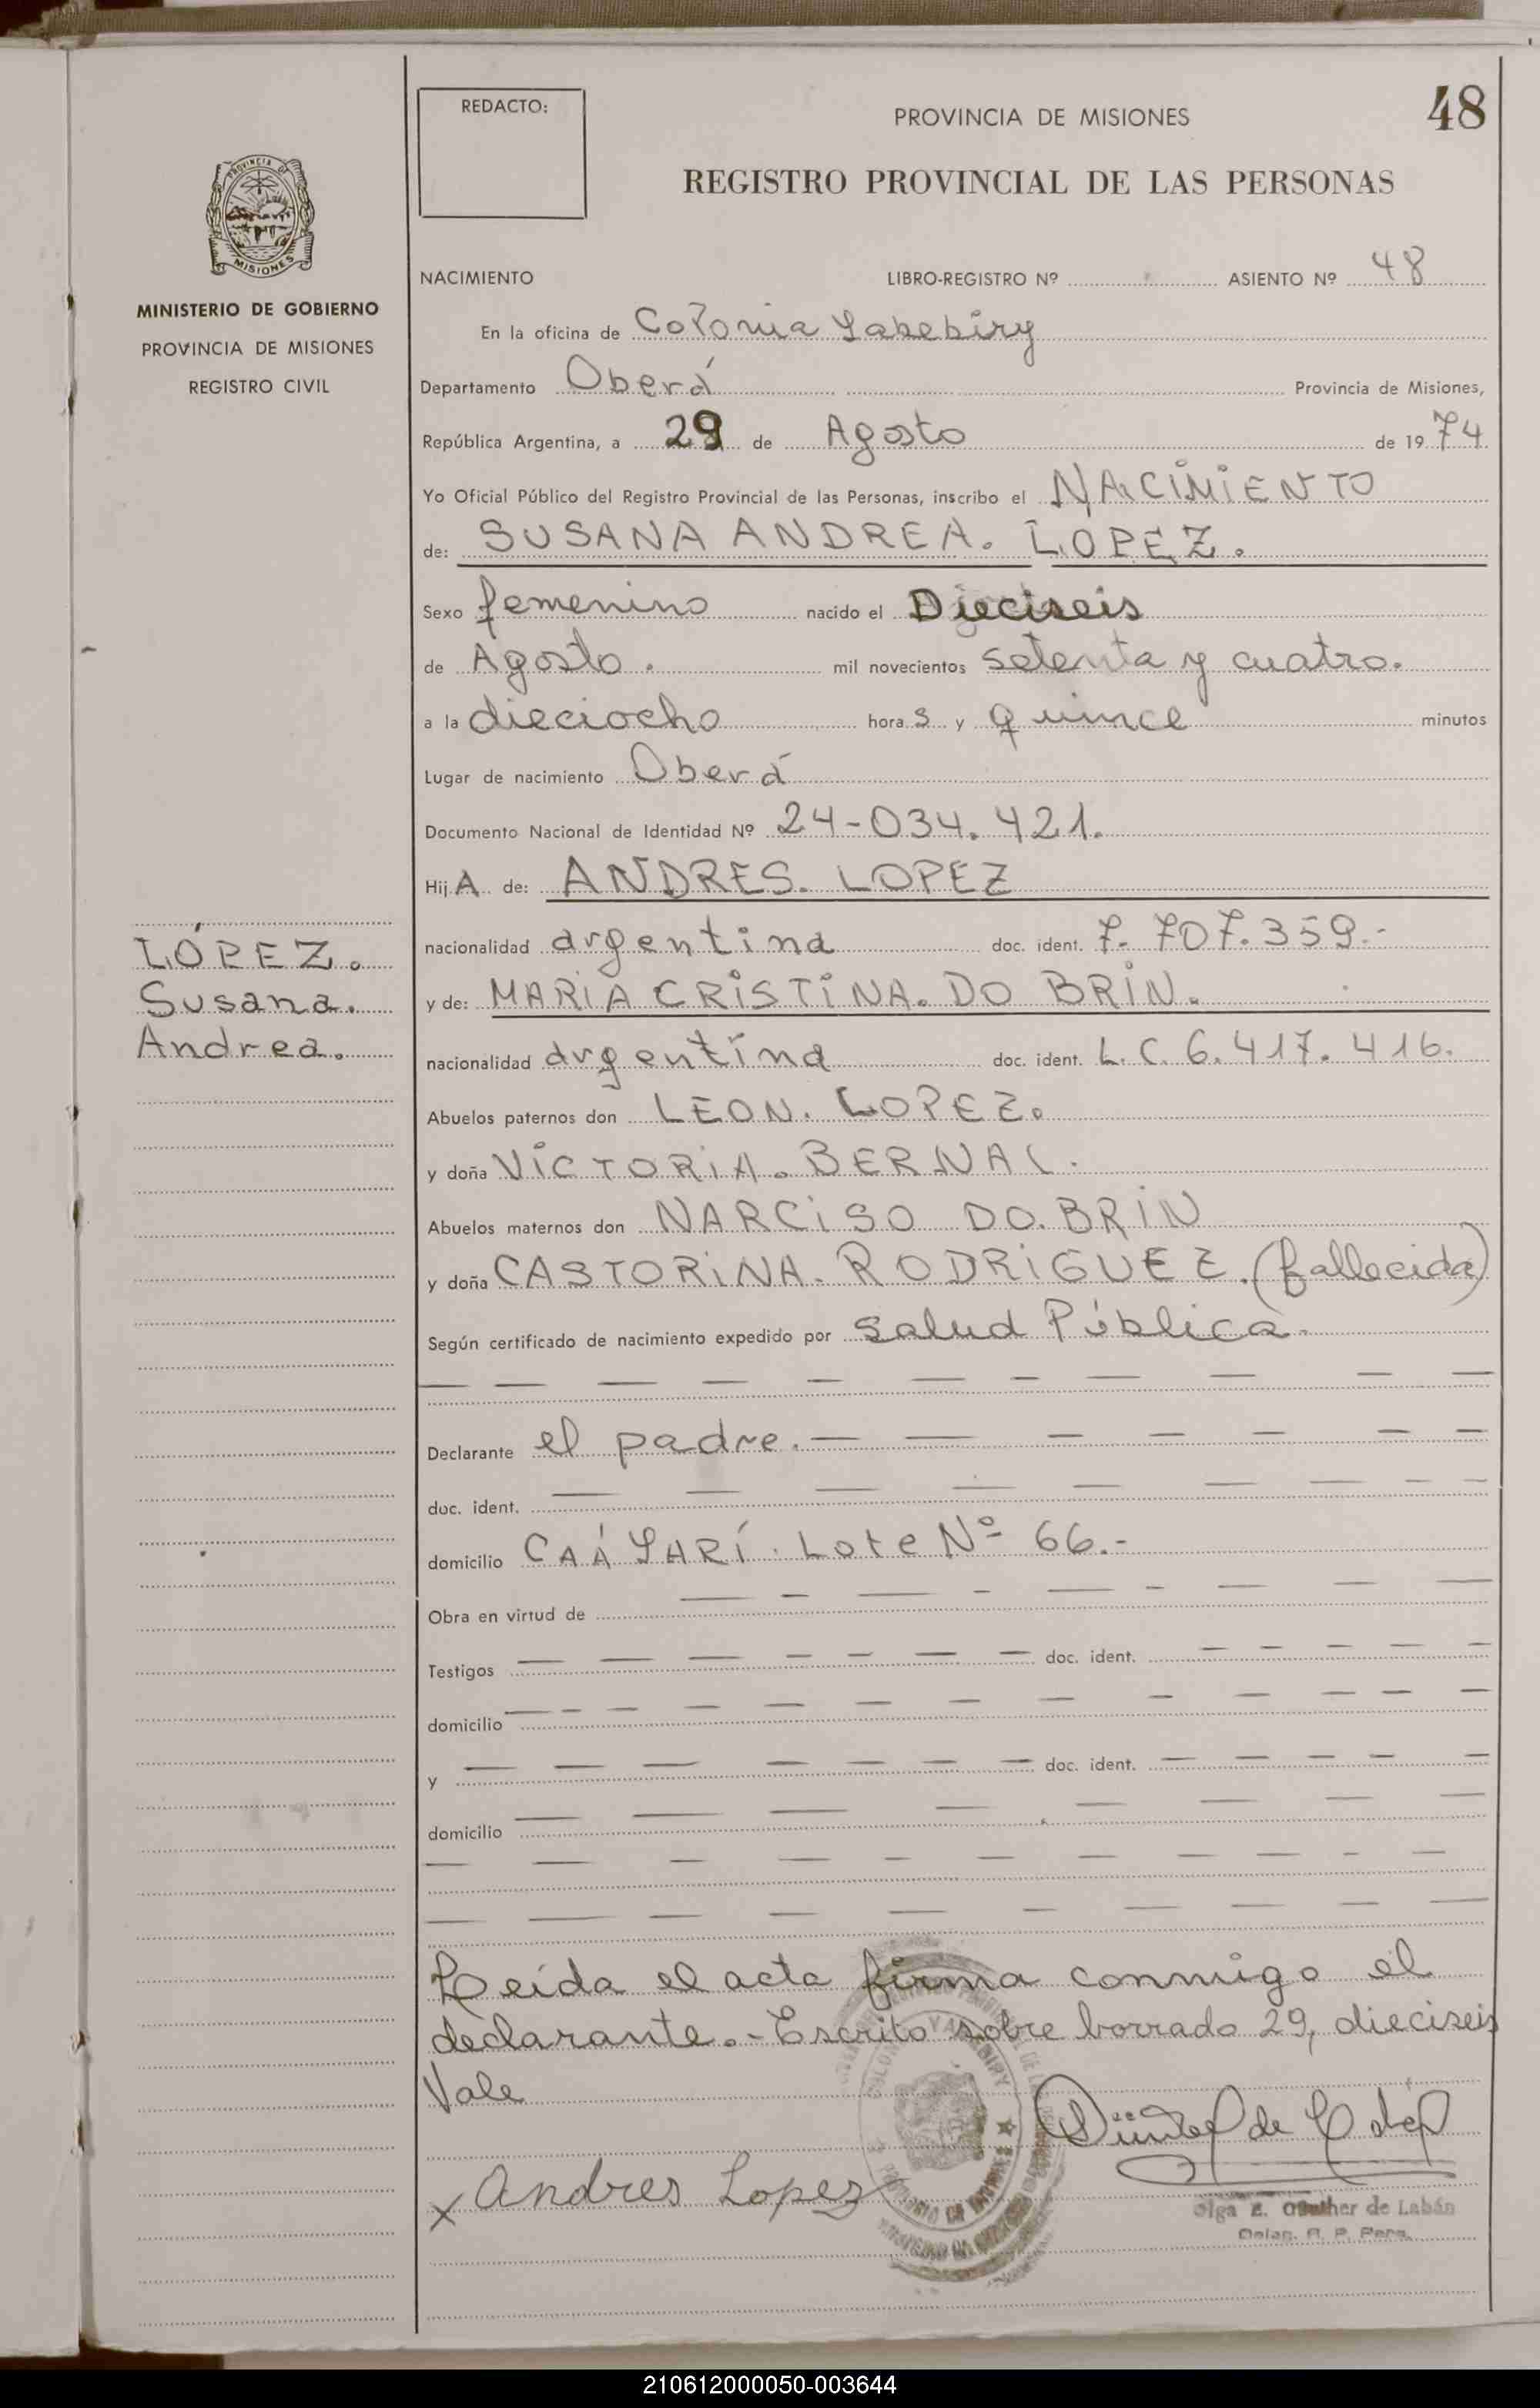 REDACTO:
PROVINCIA DE MISIONES
48
REGISTRO PROVINCIAL DE LAS PERSONAS
MISIONES
MINISTERIO DE GOBIERNO
PROVINCIA DE MISIONES
REGISTRO CIVIL
NACIMIENTO LIBRO-REGISTRO Nº ASIENTO Nº 48
En la oficina de Colonia Yabebiry
Departamento Oberá Provincia de Misiones,
República Argentina, a 29 de Agosto de 19 74
Yo Oficial Público del Registro Provincial de las Personas, inscribo el NACIMIENTO
de: SUSANA ANDREA. LOPEZ.
Sexo femenino nacido el Dieciseis
de Agosto. mil novecientos setenta y cuatro.
a la dieciocho hora s y quince minutos
Lugar de nacimiento Oberá
Documento Nacional de Identidad Nº 24-034.421.
Hij A de: ANDRES. LOPEZ
nacionalidad argentina doc. ident. 7.707.359.-
y de: MARIA CRISTINA. DO BRIN.
nacionalidad argentina doc. ident. L.C. 6.417.416.
Abuelos paternos don LEON. LOPEZ.
y doña VICTORIA. BERNAL.
Abuelos maternos don NARCISO DO. BRIN
y doña CASTORINA. RODRIGUEZ. (fallecida)
Según certificado de nacimiento expedido por Salud Pública.
LÓPEZ.
Susana.
Andrea.
Declarante el padre.
doc. ident.
domicilio CAÁ YARÍ. Lote Nº 66.-
Obra en virtud de
Testigos doc. ident.
domicilio
y doc. ident.
domicilio
Leida el acta firma conmigo el
declarante.- Escrito sobre borrado 29, dieciseis
Vale
x Andres Lopez
Olga E. Günther de Labán
Deleg. R. P. Pers.
210612000050-003644